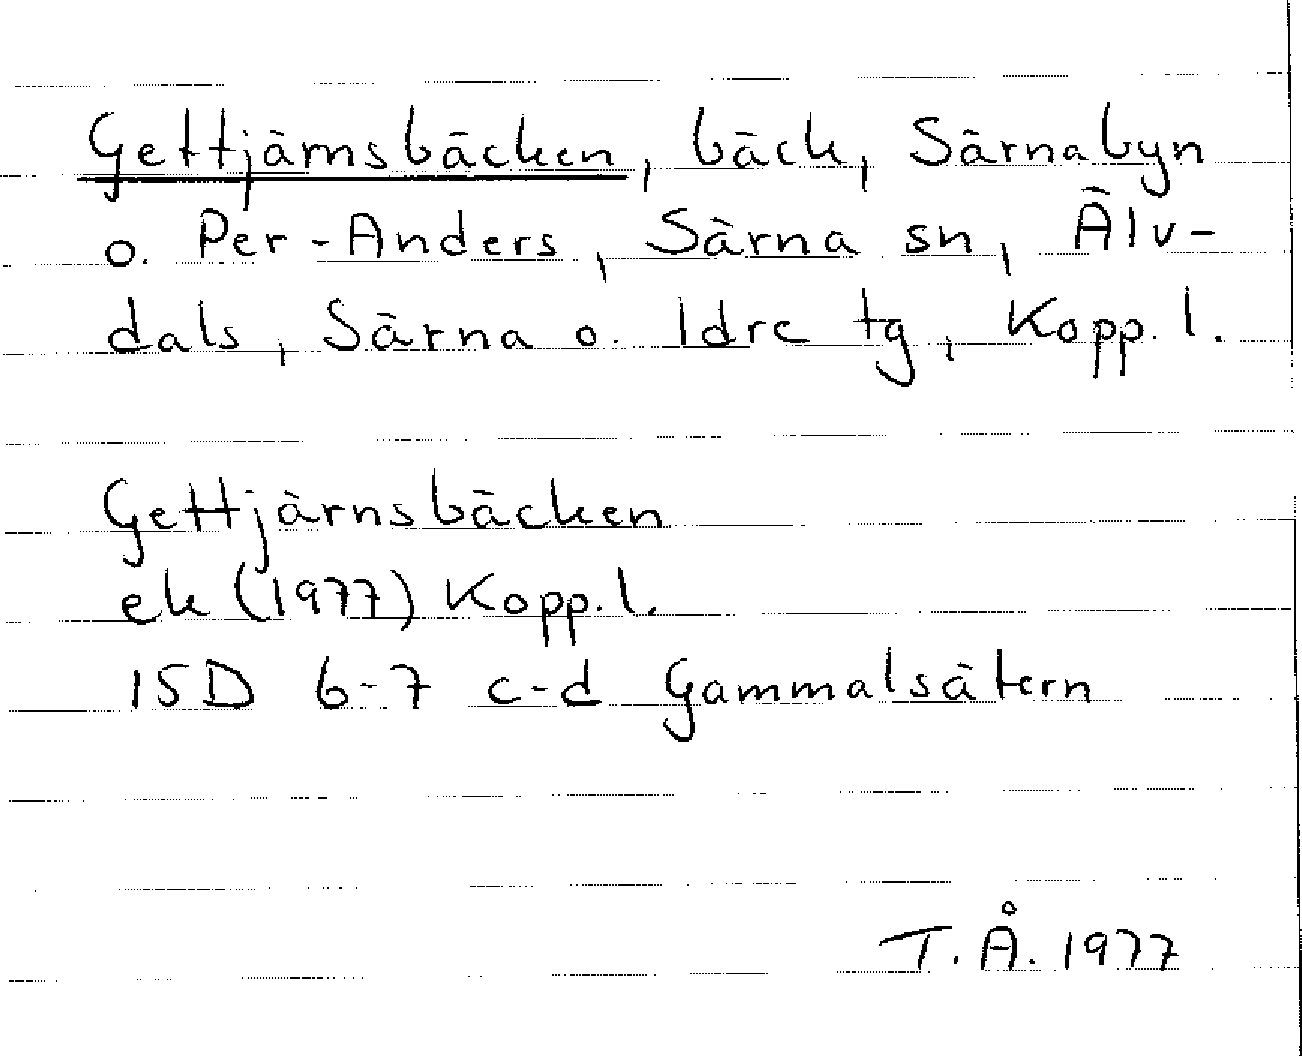 Gettjärnsbäcken, bäck, Särnabyn
o. Per-Anders, Särna sn, Älv-
dals, Särna o. Idre tg, Kopp. l.
Gettjärnsbäcken
ek (1977) Kopp. l.
15D 6-7 c-d Gammalsätern
T. Å. 1977